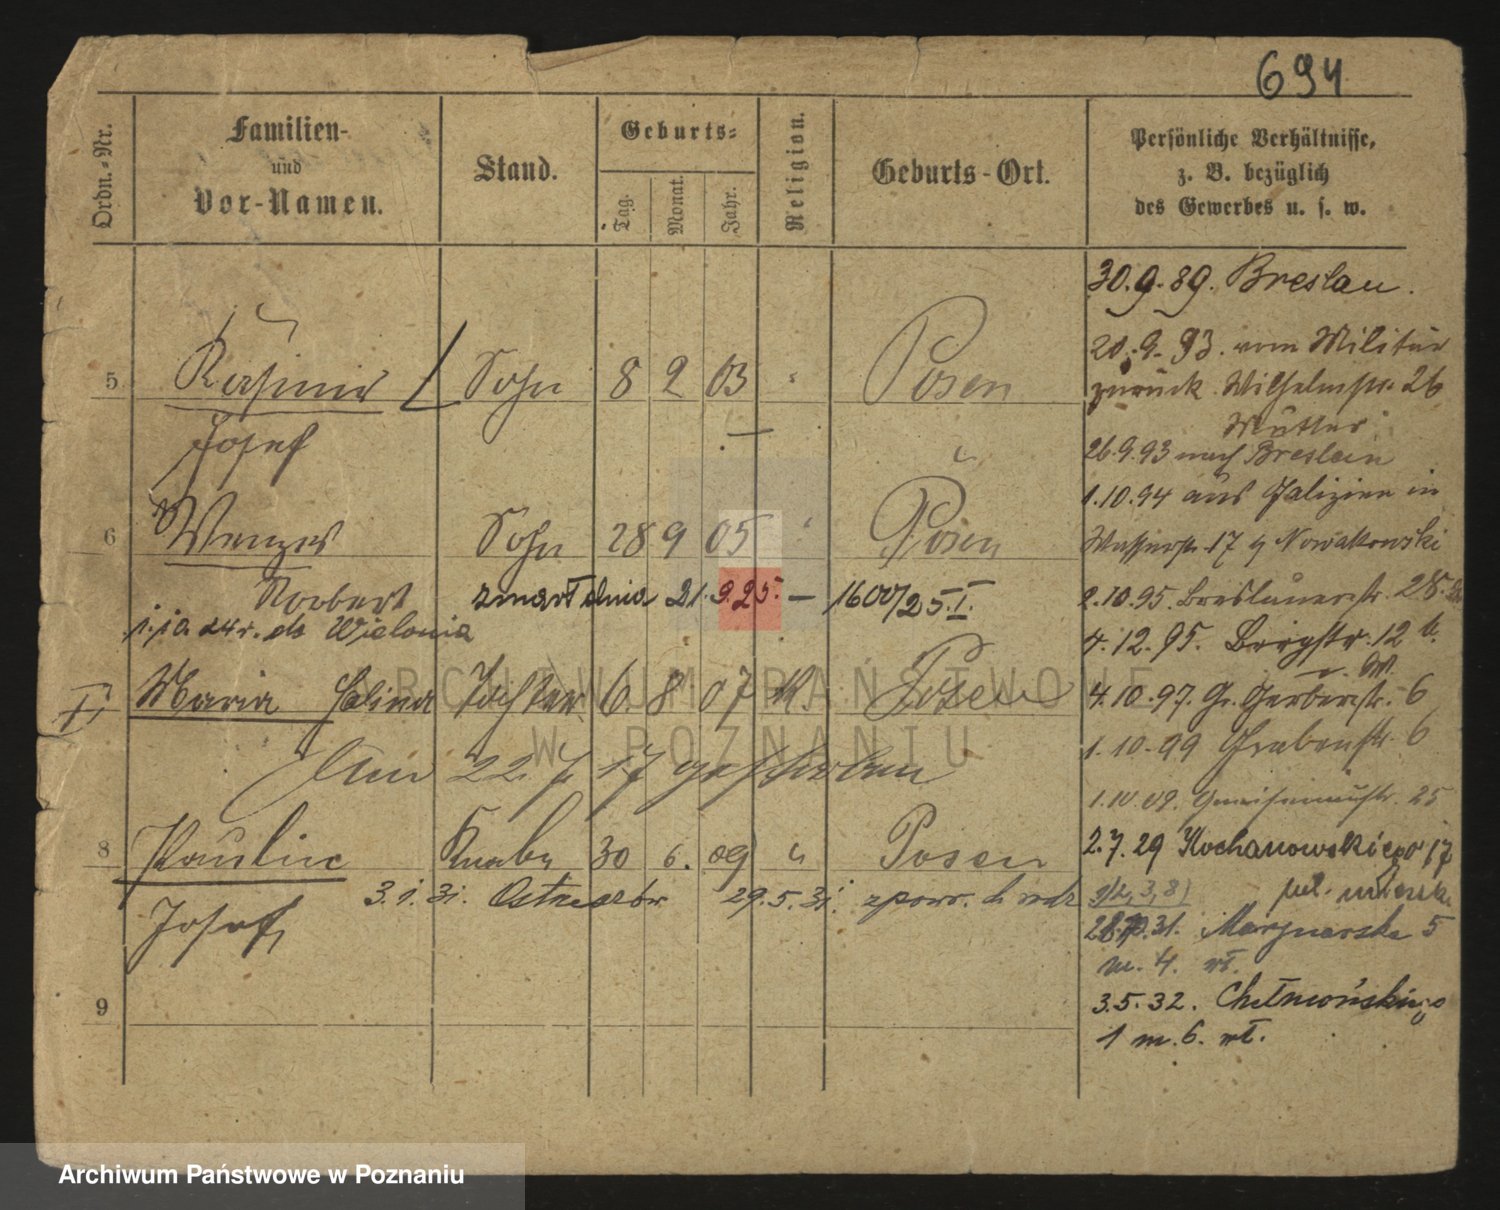 694
Ordn.-Nr.
Familien-
und
Vor-Namen.
Stand.
Geburts-
Tag.
Monat.
Jahr.
Religion.
Geburts-Ort.
Persönliche Verhältnisse,
z. B. bezüglich
des Gewerbes u. s. w.
30.9.89. Breslau.
20.9.93. vom Militär
zurück. Wilhelmstr. 26
Mutter
26.9.93 nach Breslau
1.10.94 aus Galizien in
Wasserstr. 17 Nowakowski
2.10.95. Breslauerstr. 28.
4.12.95. Bergstr. 12 b.
4.10.97. Gr. Gerberstr. 6
1.10.99 Grabenstr. 6
1.10.09. Gneisenaustr. 25
2.7.29 Kochanowskiego 17
31. Marynarska 5
m. 4. wł.
3.5.32. Chełmońskiego
1 m. 6. wł.
5 Kasimir Sohn 8 2 03 " Posen
Josef
6 Wenzel Sohn 28 9 05 " Posen
Norbert zmarł dnia 21.9.25. — 1600/25.I.
1.10.24 r. do Wielonia
Maria Halina Tochter 6 8 07 K. Posen
Am 22. 7. 17 gestorben
8 Paulin Knabe 30 6. 09 " Posen
3.1.31. 29.5.31.
Josef
9
ARCHIWUM PAŃSTWOWE
W POZNANIU
Archiwum Państwowe w Poznaniu